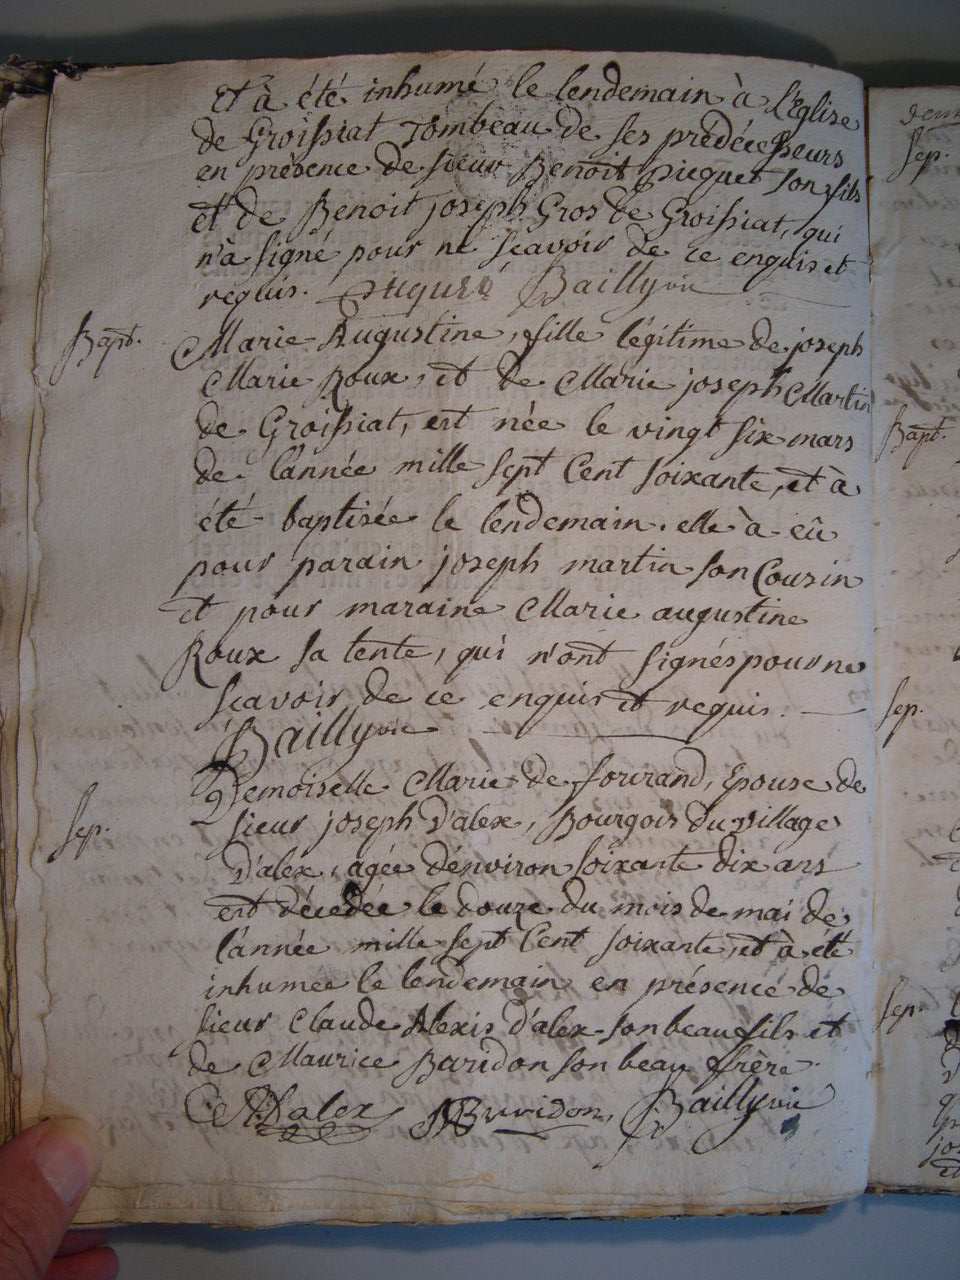 et à été inhumé le lendemain à l'Eglise
de Groissiat Tombeau de ses prédécesseurs
en présence de sieur Benoit picquet son fils
et de Benoit joseph Gros de Groissiat, qui
n'a signé pour ne scavoir de ce enquis et
requis. picquet Bailly vic
Bapt. Marie Augustine, fille légitime de joseph
Marie Roux, et de Marie joseph Martin
de Groissiat, est née le vingt six mars
de l'année mille sept Cent soixante, et à
été baptisée le lendemain. elle à eû
pour parain joseph martin son Cousin
et pour maraine Marie augustine
Roux sa tente, qui n'ont signés pour ne
scavoir de ce enquis et requis.
Bailly vic
Sep. Demoiselle Marie de fourand, Epouse de
sieur joseph D'alex, Bourgois du village
D'alex, agée d'environ soixante dix ans
est décedée le douze du mois de mai de
l'année mille sept Cent soixante, et à été
inhumee le lendemain en présence de
sieur Claude Alexis d'alex son beau fils et
de Maurice Baridon son beau frère.
Dalex Buridon, Bailly vic
Sep.
Bapt.
Sep.
Sep.